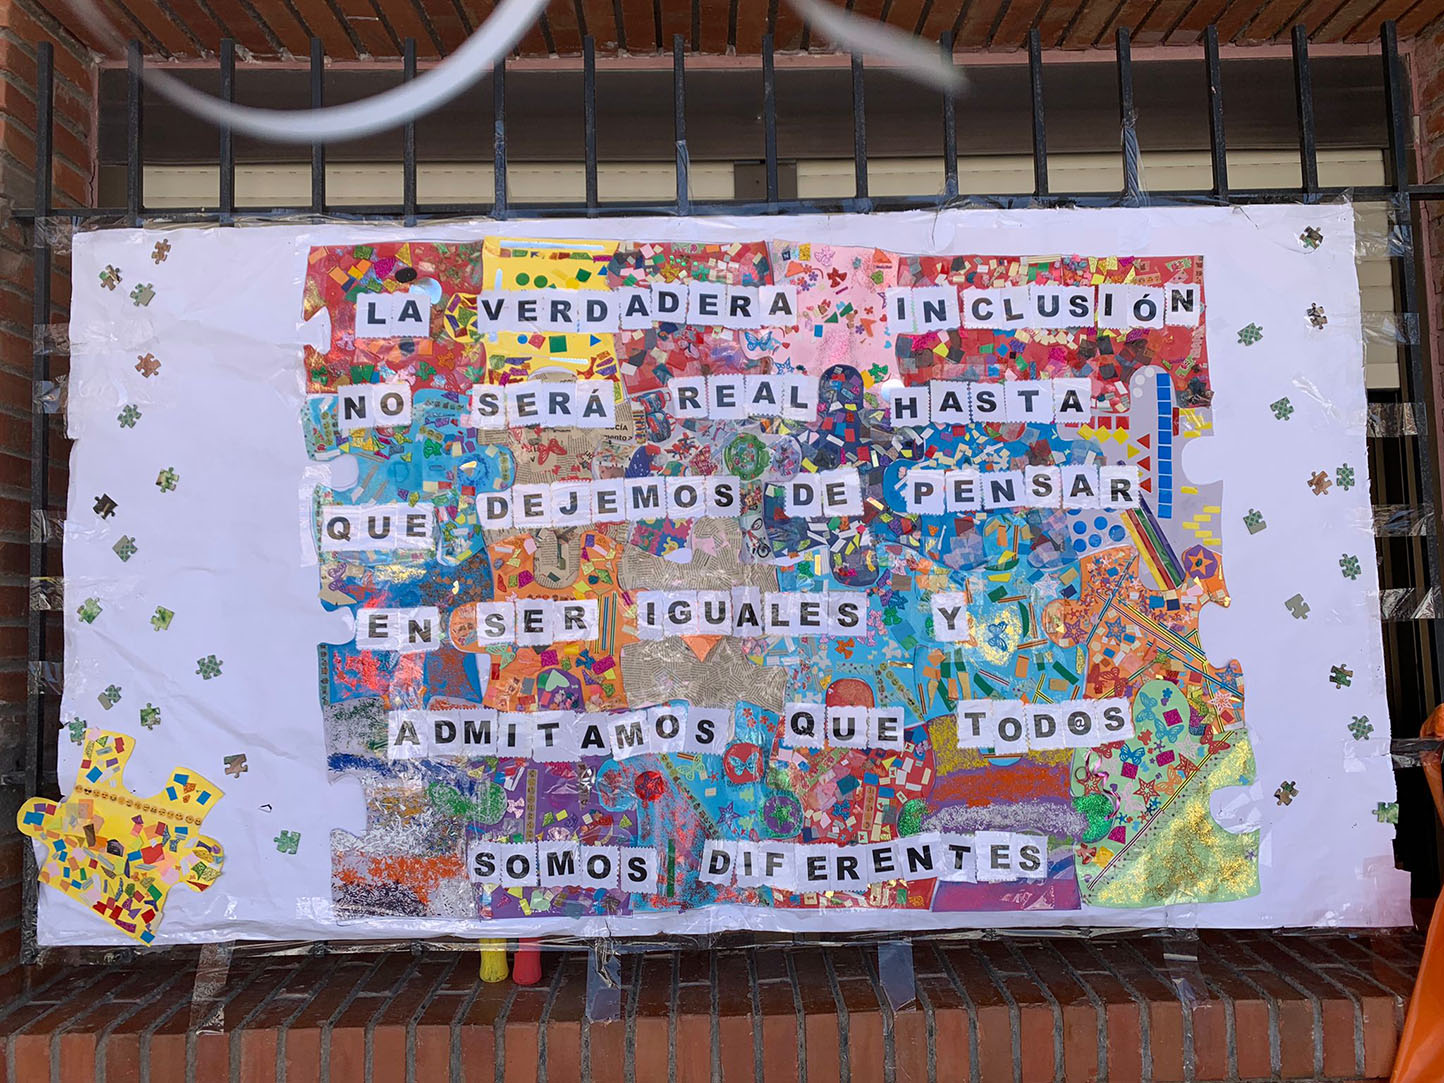 LA VERDADERA INCLUSIÓN
NO SERÁ REAL HASTA
QUE DEJEMOS DE PENSAR
EN SER IGUALES Y
ADMITAMOS QUE TOD@S
SOMOS DIFERENTES